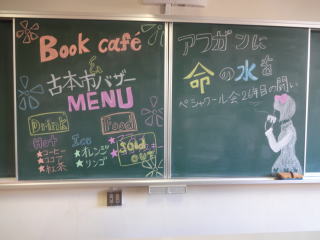 Book café
&
古本市バザー
MENU
Drink
Food
Hot
Ice
★コーヒー
★ココア
★紅茶
★オレンジ
★リンゴ
SOLD
OUT
アフガンに
命の水を
ペシャワール会26年目の闘い